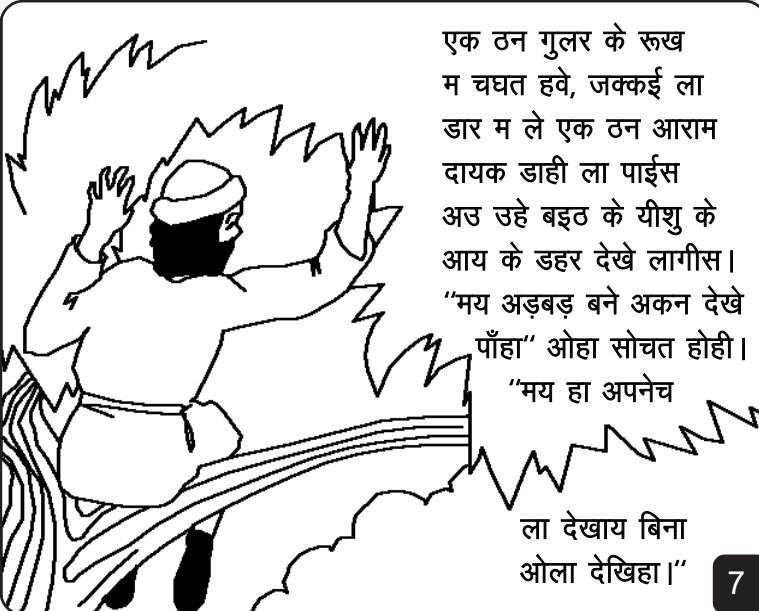 एक ठन गुलर के रूख
म चघत हवे, जक्कई ला
डार म ले एक ठन आराम
दायक डाही ला पाईस
अउ उहे बइठ के यीशु के
आय के डहर देखे लागीस।
“मय अड़बड़ बने अकन देखे
पाँहा“ ओहा सोचत होही।
“मय हा अपनेच
ला देखाय बिना
ओला देखिहा।“
7